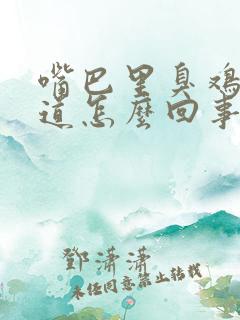 嘴巴里臭鸡
道怎么回事
邓潇潇
未经同意禁止转载